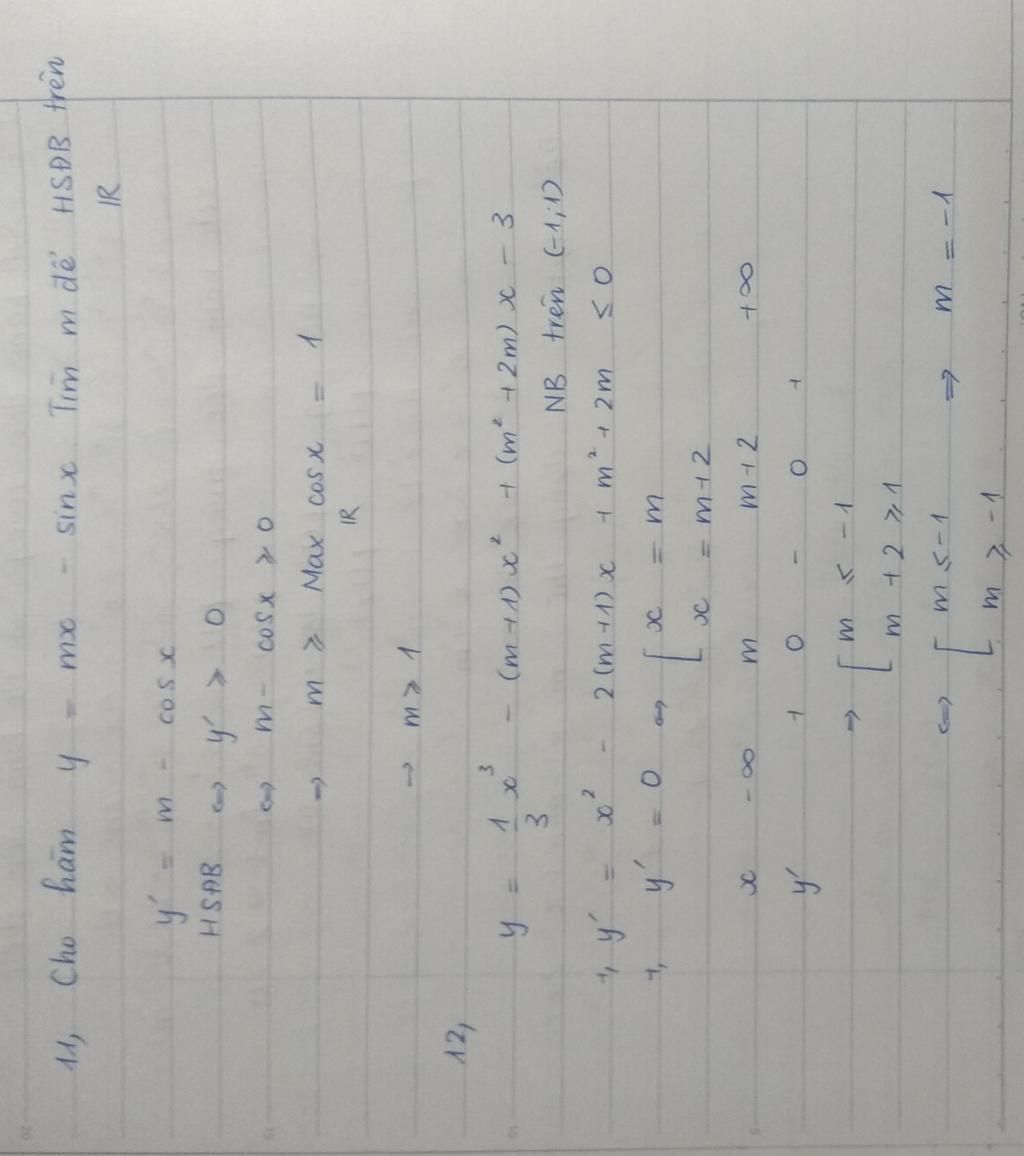 11, Cho hàm y = mx - sinx. Tìm m để HSĐB trên
IR
y' = m - cosx
HSĐB ⇔ y' ≥ 0
⇔ m - cosx ≥ 0
→ m ≥ Max cosx = 1
IR
→ m ≥ 1
12,
y = 1/3 x³ - (m+1)x² + (m² + 2m)x - 3
NB trên (-1;1)
+, y' = x² - 2(m+1)x + m² + 2m ≤ 0
+, y' = 0 ⇔ [ x = m
x = m+2
x -∞ m m+2 +∞
y' + 0 - 0 +
→ [ m ≤ -1
m + 2 ≥ 1
⇔ [ m ≤ -1 ⇒ m = -1
m ≥ -1